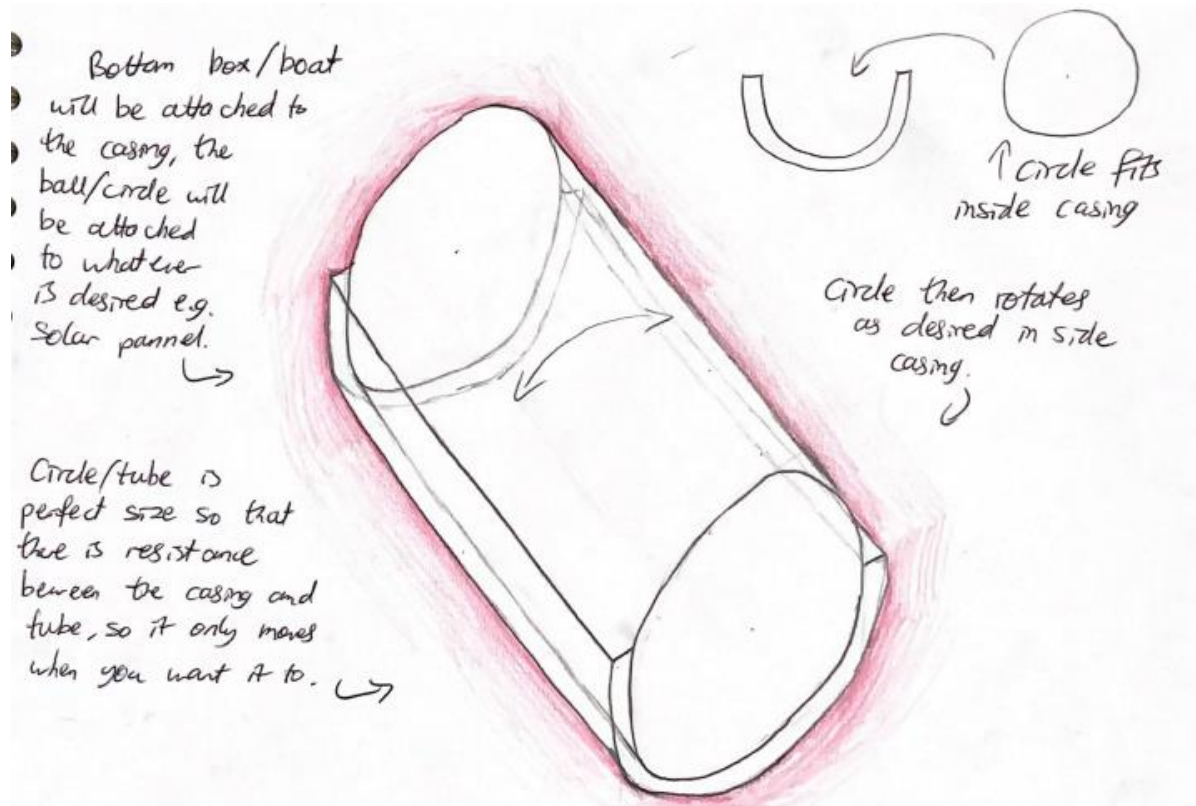 Bottom box/boat
will be attached to
the casing, the
ball/circle will
be attached
to whatever
is desired e.g.
Solar pannel.
Circle/tube is
perfect size so that
there is resistance
beween the casing and
tube, so it only moves
when you want it to.
Circle fits
inside casing
Circle then rotates
as desired in side
casing.